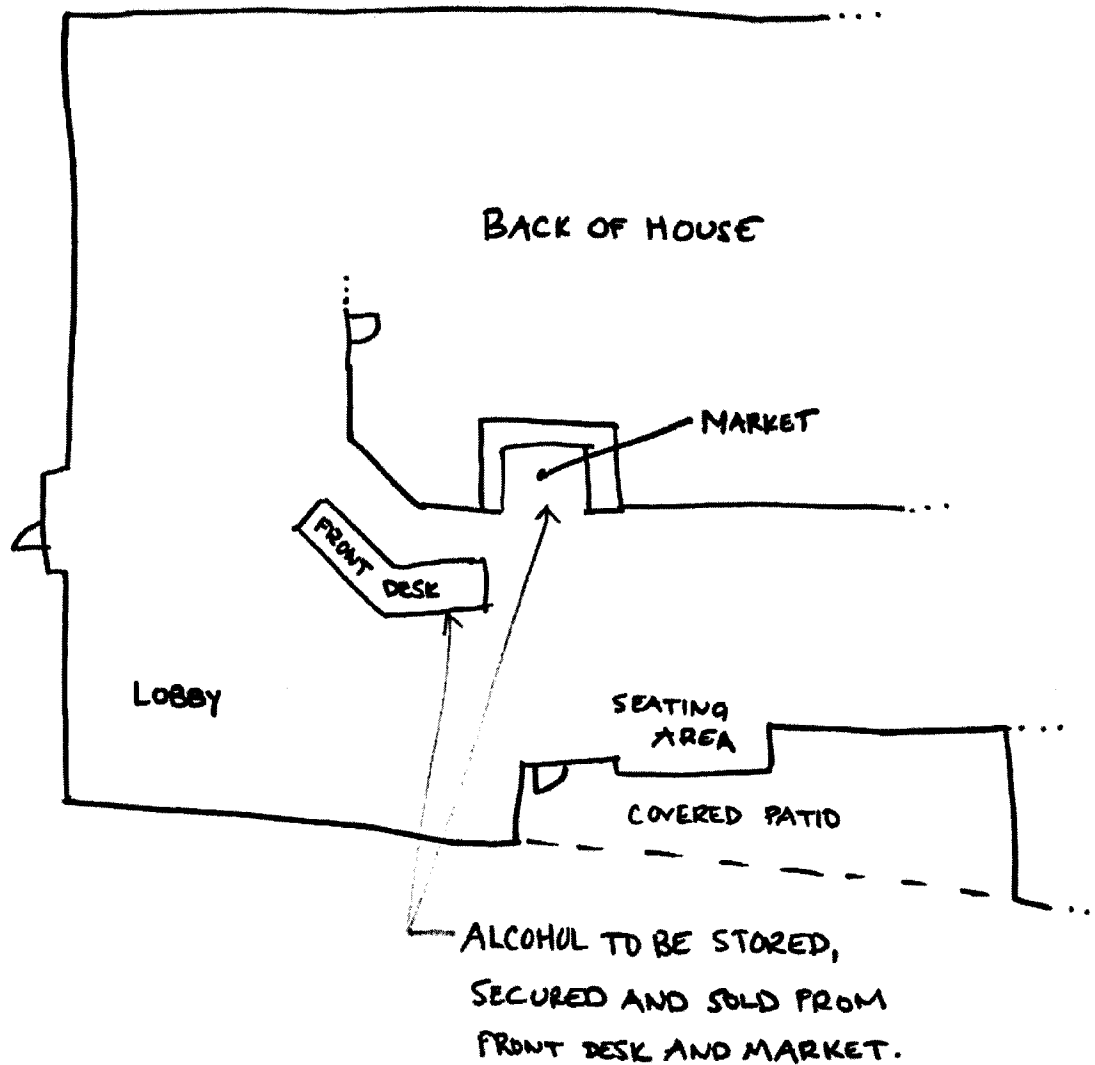 BACK OF HOUSE
MARKET
FRONT DESK
LOBBY
SEATING
AREA
COVERED PATIO
ALCOHOL TO BE STORED,
SECURED AND SOLD FROM
FRONT DESK AND MARKET.